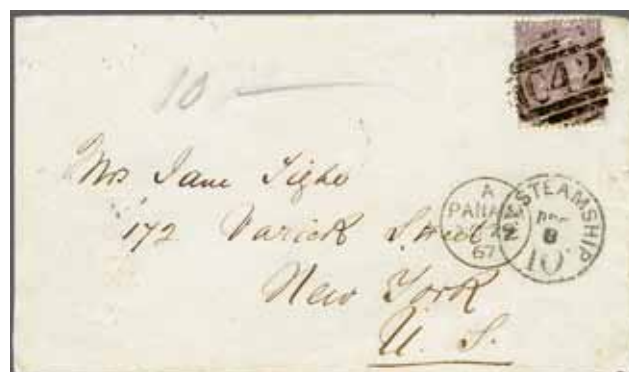 10
C42
Mrs Jane Tighe
172 Varick Street
New York
U. S.
A
PANAMA
67
STEAMSHIP
8
10